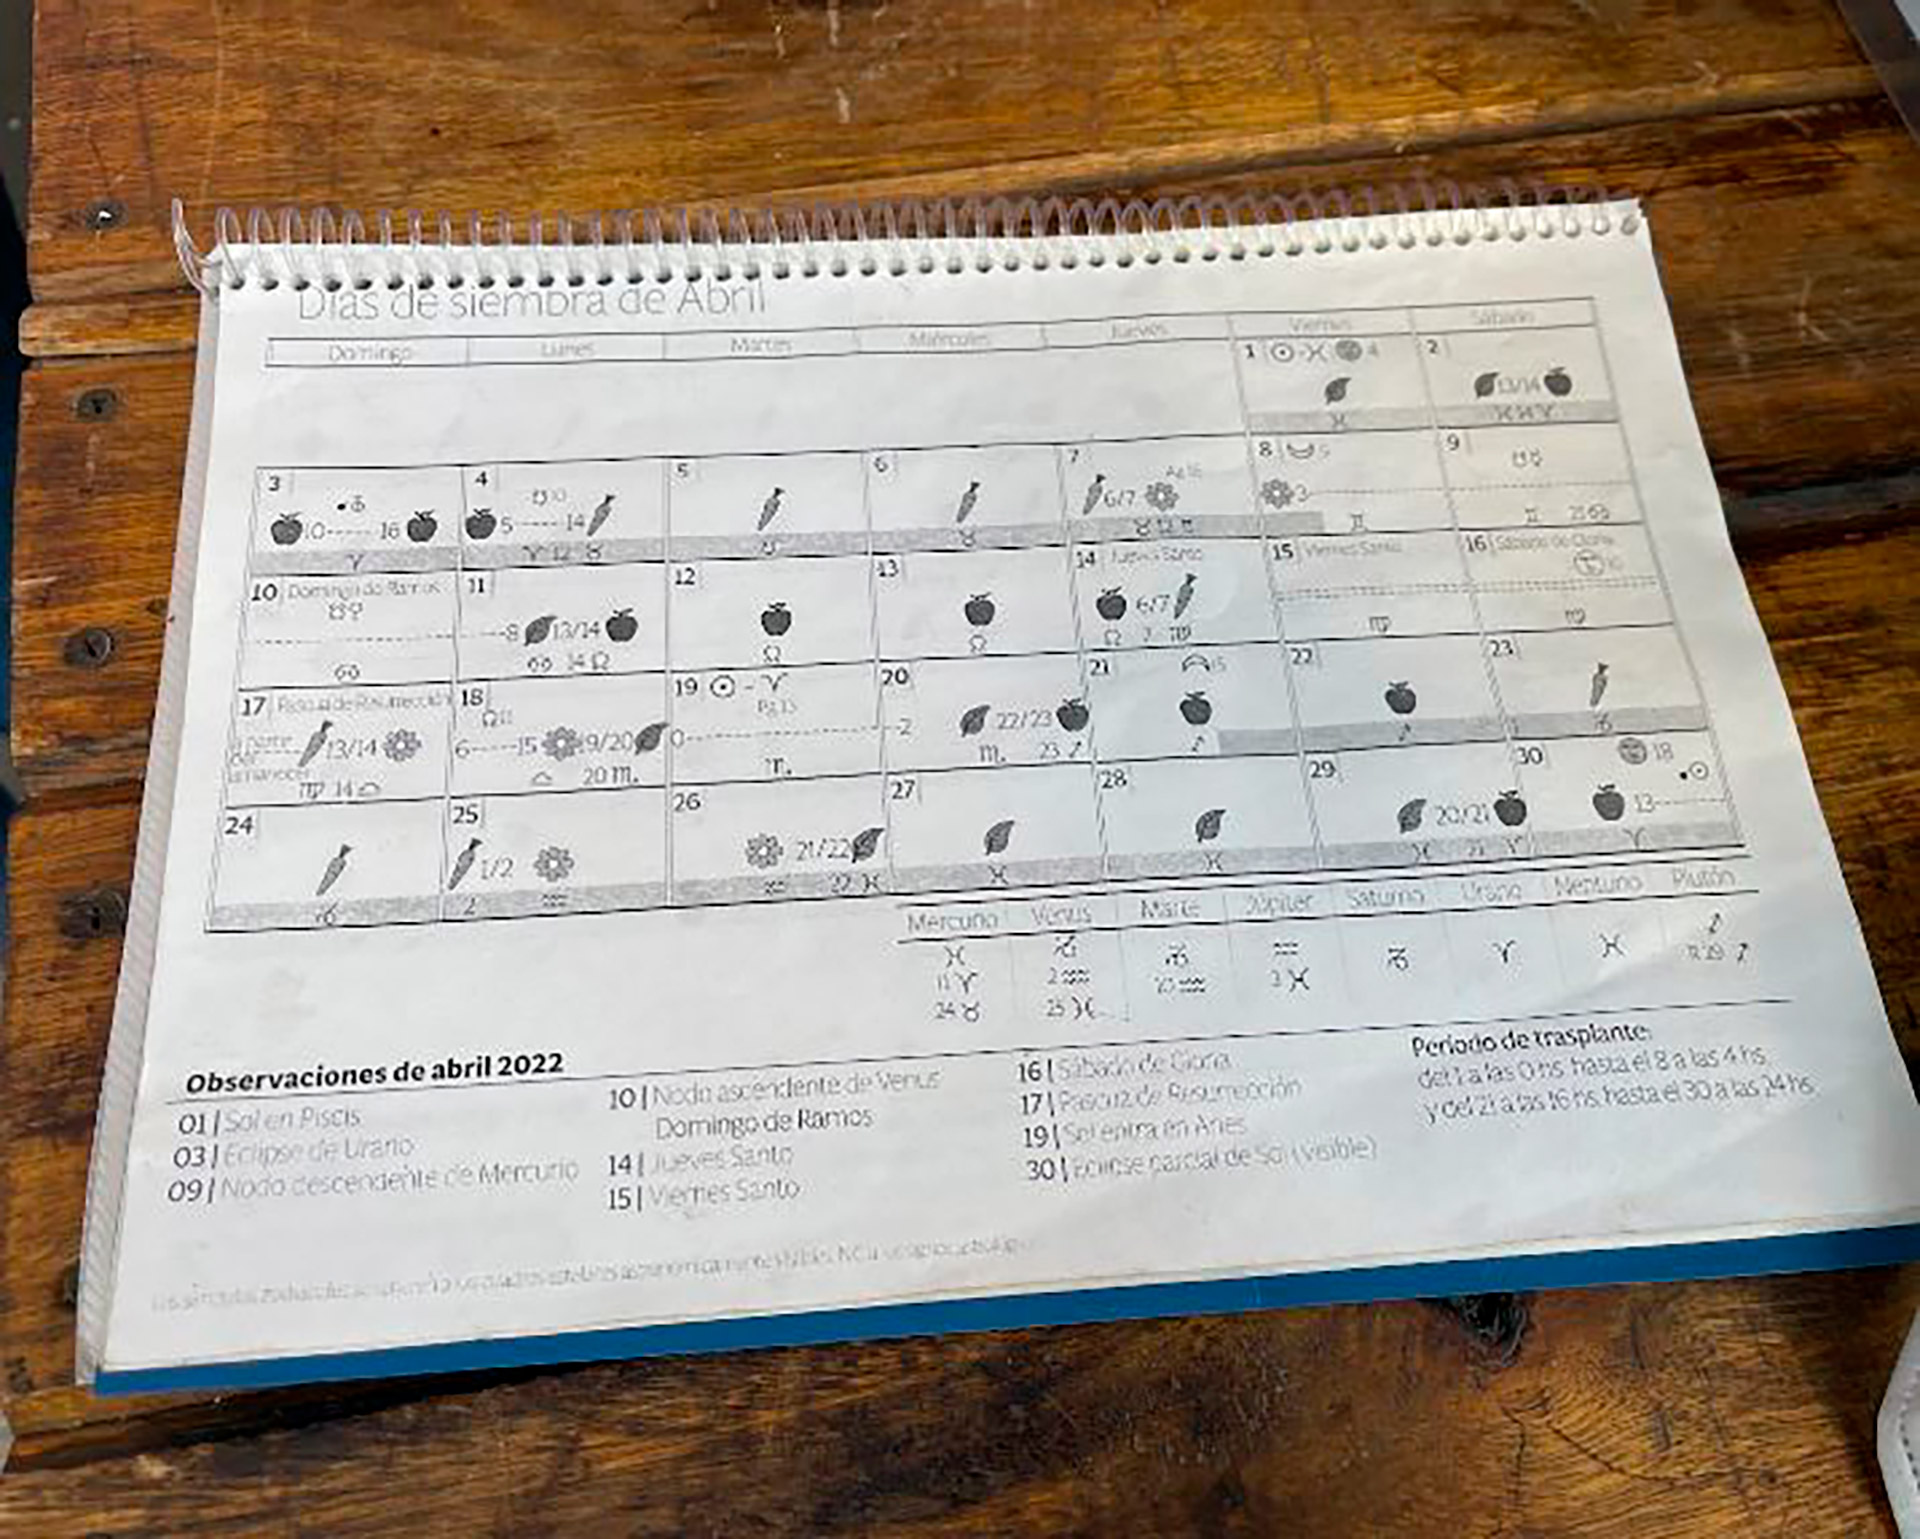 Días de siembra de Abril
Domingo Lunes Martes Miércoles Jueves Viernes Sábado
1 4 2 13/14
3 0 16 4 5 14 5 6 7 6/7 8 5 3 9
12
10 Domingo de Ramos 11 8 13/14 12 13 14 Jueves Santo 6/7 15 Viernes Santo 16 Sábado de Gloria
14
17 Pascua de Resurrección 18 19 20 21 15 22 23
a partir 13/14 6 15 19/20 0 2 22/23
del
amanecer
14 20 23
24 25 1/2 26 21/22 27 28 29 20/21 30 18 13
2 22 21
Mercurio Venus Marte Júpiter Saturno Urano Neptuno Plutón
11 2 3 R 29
24
Observaciones de abril 2022
01 | Sol en Piscis
03 | Eclipse de Urano
09 | Nodo descendente de Mercurio
10 | Nodo ascendente de Venus
Domingo de Ramos
14 | Jueves Santo
15 | Viernes Santo
16 | Sábado de Gloria
17 | Pascua de Resurrección
19 | Sol entra en Aries
30 | Eclipse parcial de Sol (visible)
Período de trasplante:
del 1 a las 0 hs. hasta el 8 a las 4 hs
y del 21 a las 16 hs. hasta el 30 a las 24 hs.